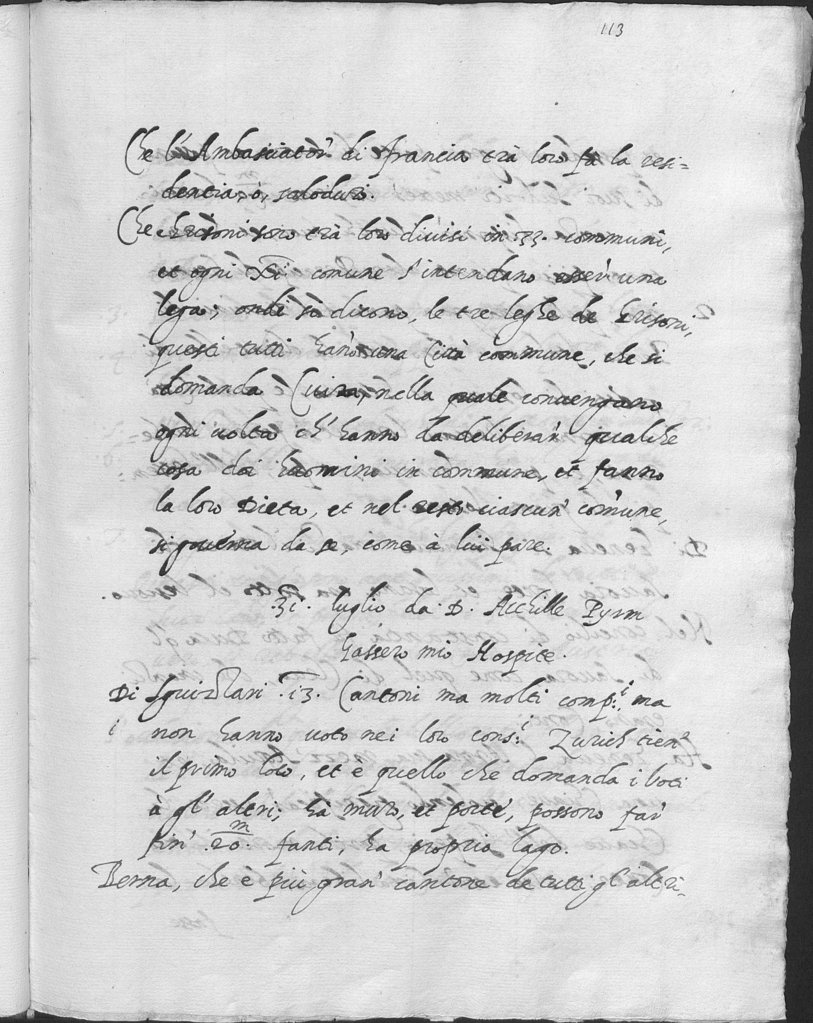 113
Che l'Ambasciator' di francia trà loro fa la resi=
dentia, ò, saloduri.
Che Grisoni sono trà loro diuisi in 33. communi,
et ogni XI comune s'intendano esser una
lega; onde so dicono, le tre leghe de Grisoni,
questi tutti hano una Città commune, che si
domanda Cuira, nella quale conuengano
ogni uolta ch' hanno da deliberar' qualche
cosa doi homini in commune, et fanno
la loro Dieta, et nel resto ciascun' com'une,
si gouerna da se, come à lui pare.
.31. luglio da .D. Acchille Pyrm
Gassero mio Hospite.
Di Sguizzari .13. Cantoni ma molti comp:i, ma
non hanno uoto nei loro cons:i Zurich tien'
il primo loco, et è quello che domanda i uoti
à gl' altri, hà muro, et porte, possono far
fin' .20.m fanti, ha proprio lago.
Berna, che è più gran' cantone de tutti gl'altri-